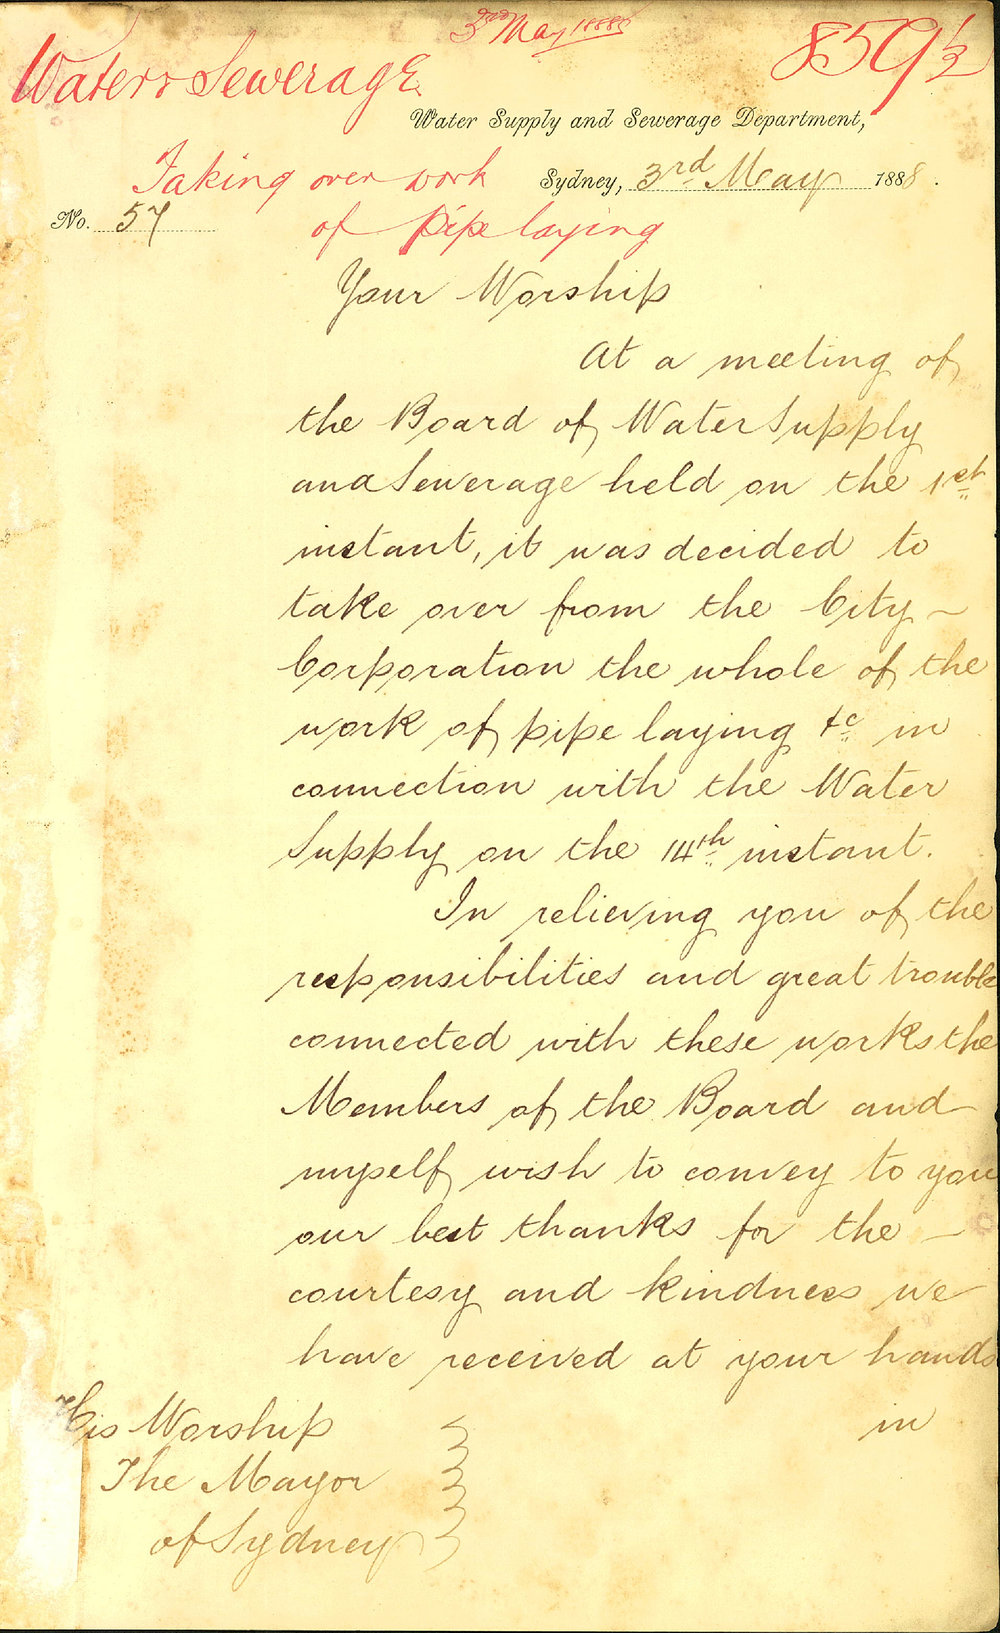 3rd May 1888
859½
Water & Sewerage
Water Supply and Sewerage Department,
Taking over work
Sydney, 3rd May 1888.
No. 57
of pipe laying
Your Worship
At a meeting of
the Board of Water Supply
and Sewerage held on the 1st
instant, it was decided to
take over from the City -
Corporation the whole of the
work of pipe laying &c in
connection with the Water
Supply on the 14th instant.
In relieving you of the
responsibilities and great trouble
connected with these works the
Members of the Board and
myself wish to convey to you
our best thanks for the -
courtesy and kindness we
have received at your hands
in
His Worship
The Mayor
of Sydney